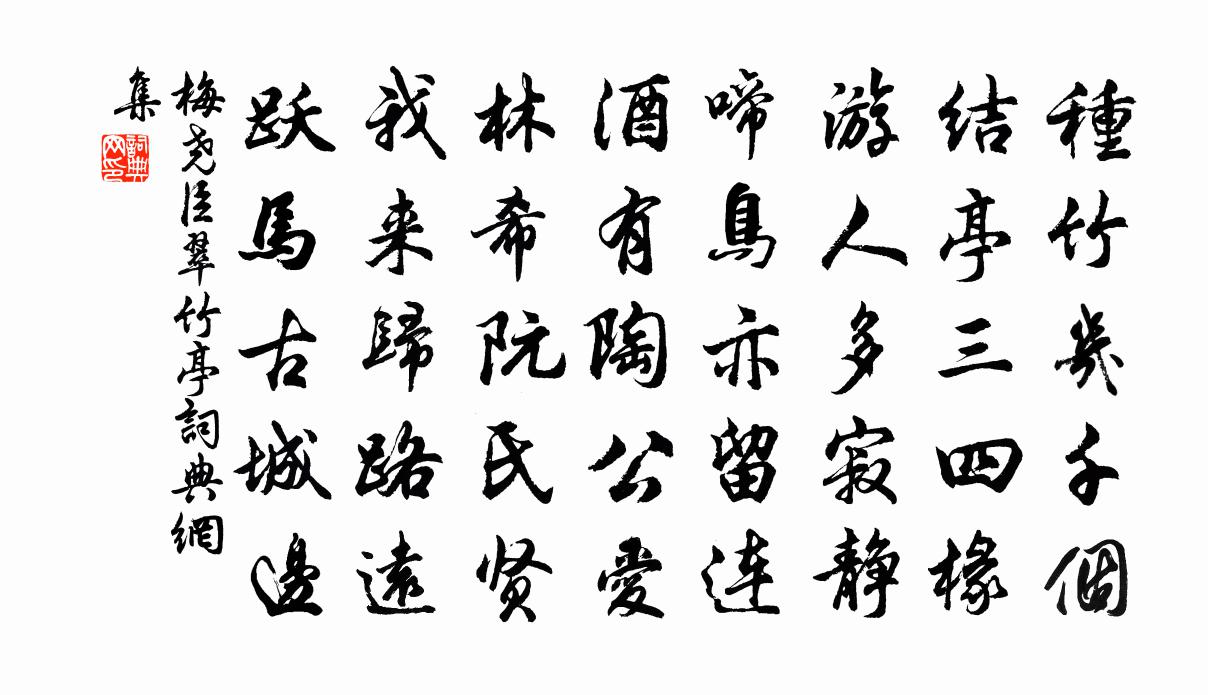 種竹幾千個
结亭三四椽
游人多寂静
啼鳥亦留連
酒有陶公愛
林希阮民贤
我来歸路遠
跃馬古城邊
梅尧臣翠竹亭詞典網
集
詞典网印